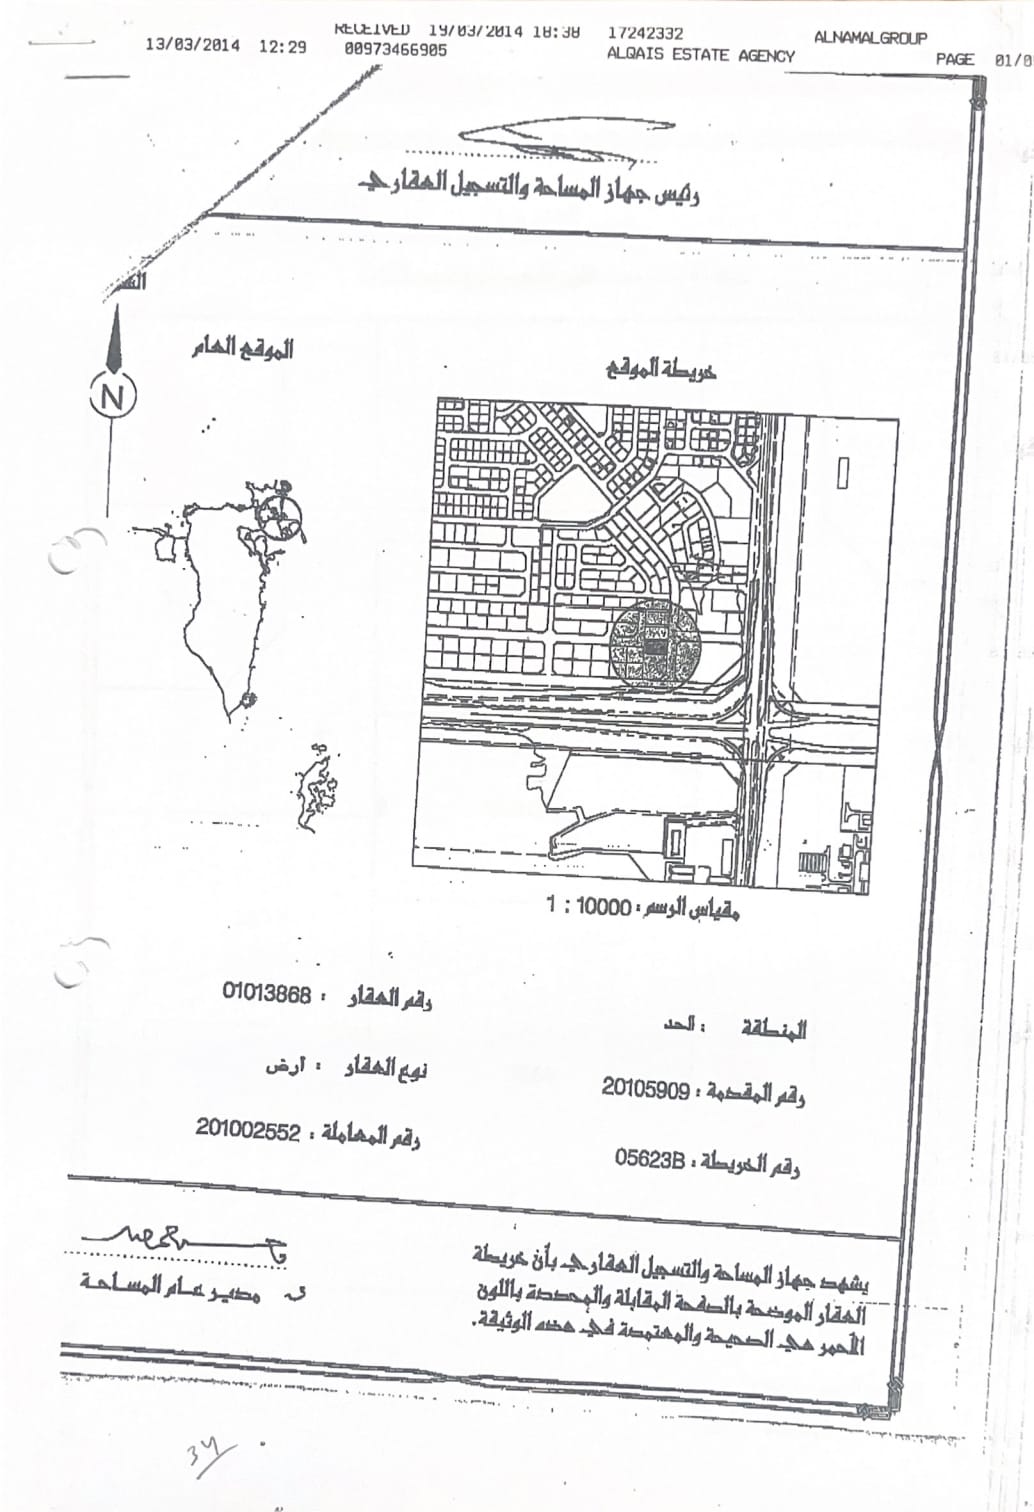 RECEIVED 19/03/2014 18:38 17242332 ALNAMALGROUP
13/03/2014 12:29 00973466905 ALQAIS ESTATE AGENCY PAGE 01/0
رئيس جهاز المساحة والتسجيل العقاري
الموقع العام
خريطة الموقع
N
مقياس الرسم : 10000 : 1
المنطقة : الحد
رقم العقار : 01013868
رقم المقدمة : 20105909
نوع العقار : أرض
رقم الخريطة : 05623B
رقم المعاملة : 201002552
يشهد جهاز المساحة والتسجيل العقاري بأن خريطة
العقار الموضحة بالصفحة المقابلة والمحددة باللون
الأحمر هي الصحيحة والمعتمدة في هذه الوثيقة.
مدير عام المساحة